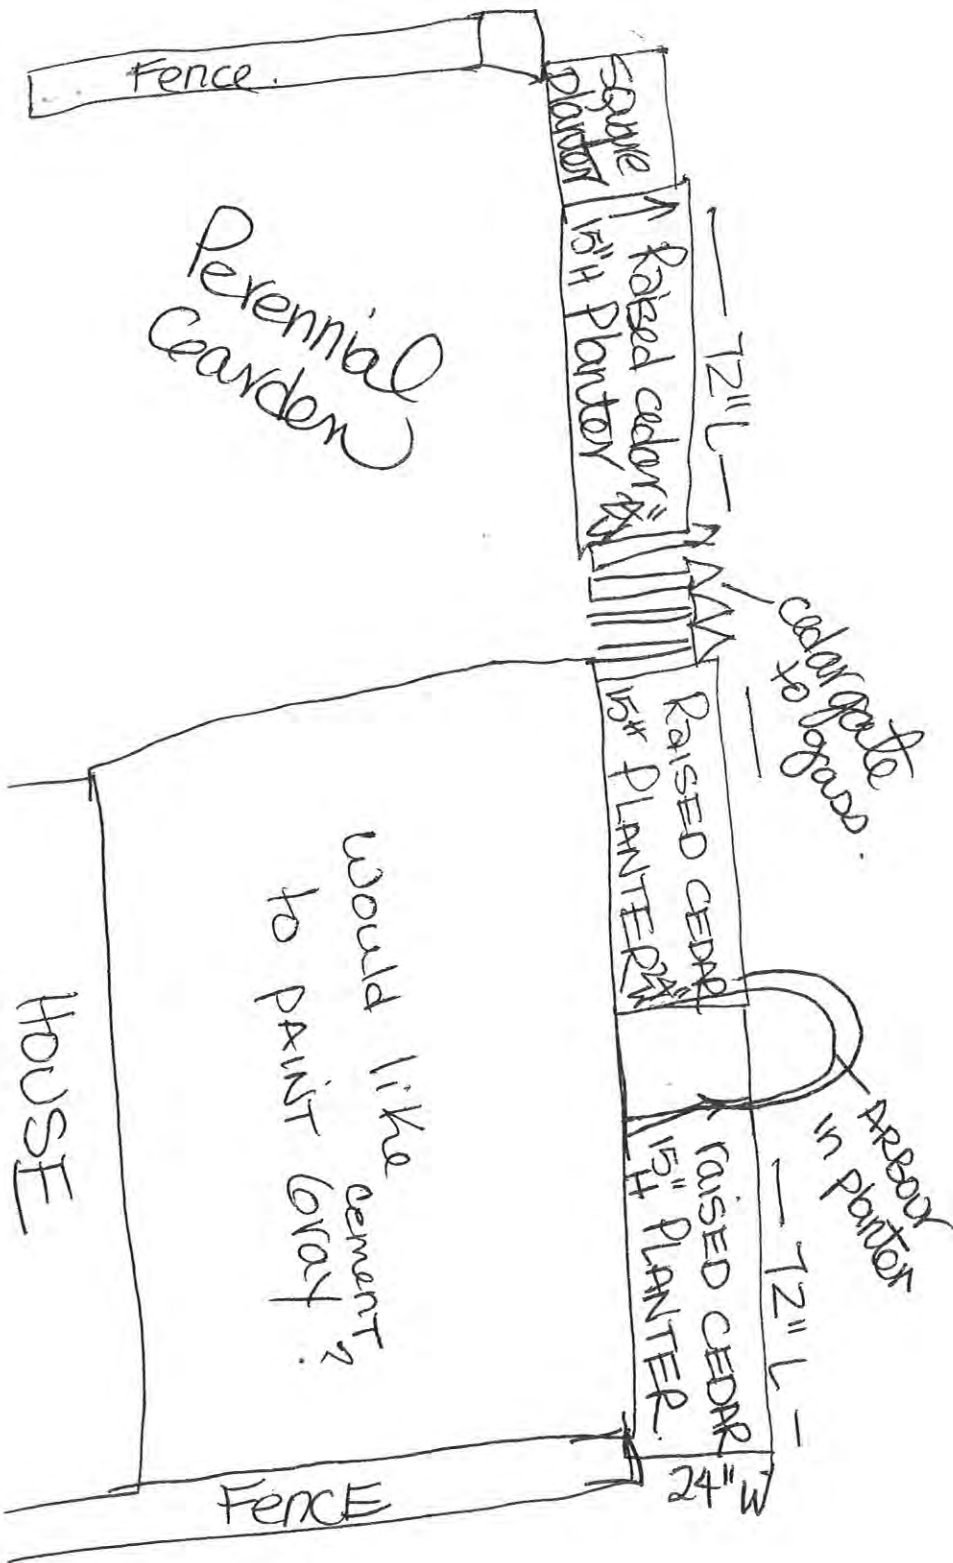 Fence.
Square
Planter
↑ Raised cedar
15"H Planter
— 72" L —
Perennial
Garden
cedar gate
to grass.
RAISED CEDAR
15"H PLANTER
24"
ARBOUR
in planter
raised CEDAR
15" H PLANTER.
— 72" L —
24" W
Would like
cement
to PAINT Gray?
HOUSE
FencE